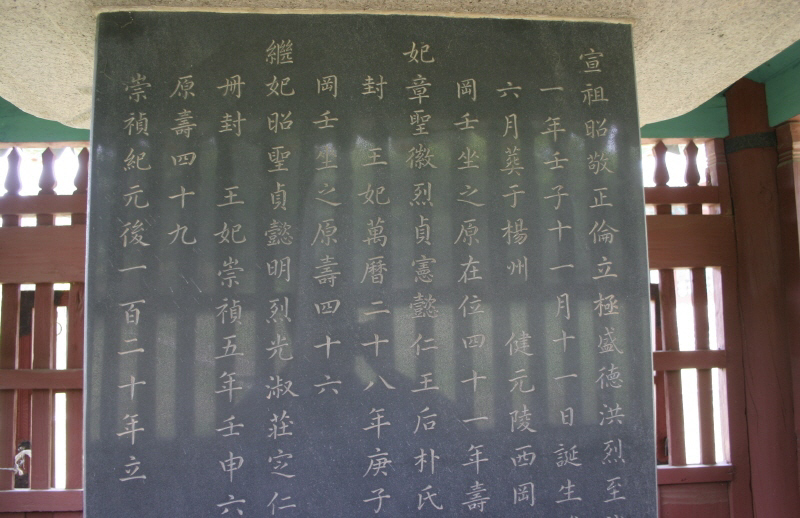 宣祖昭敬正倫立極盛德洪烈至
一年壬子十一月十一日誕生
六月葬于楊州 健元陵西岡
岡壬坐之原在位四十一年壽
妃章聖徽烈貞憲懿仁王后朴氏
封 王妃萬曆二十八年庚子
岡壬坐之原壽四十六
繼妃昭聖貞懿明烈光淑莊定仁
冊封 王妃崇禎五年壬申六
原壽四十九
崇禎紀元後一百二十年立